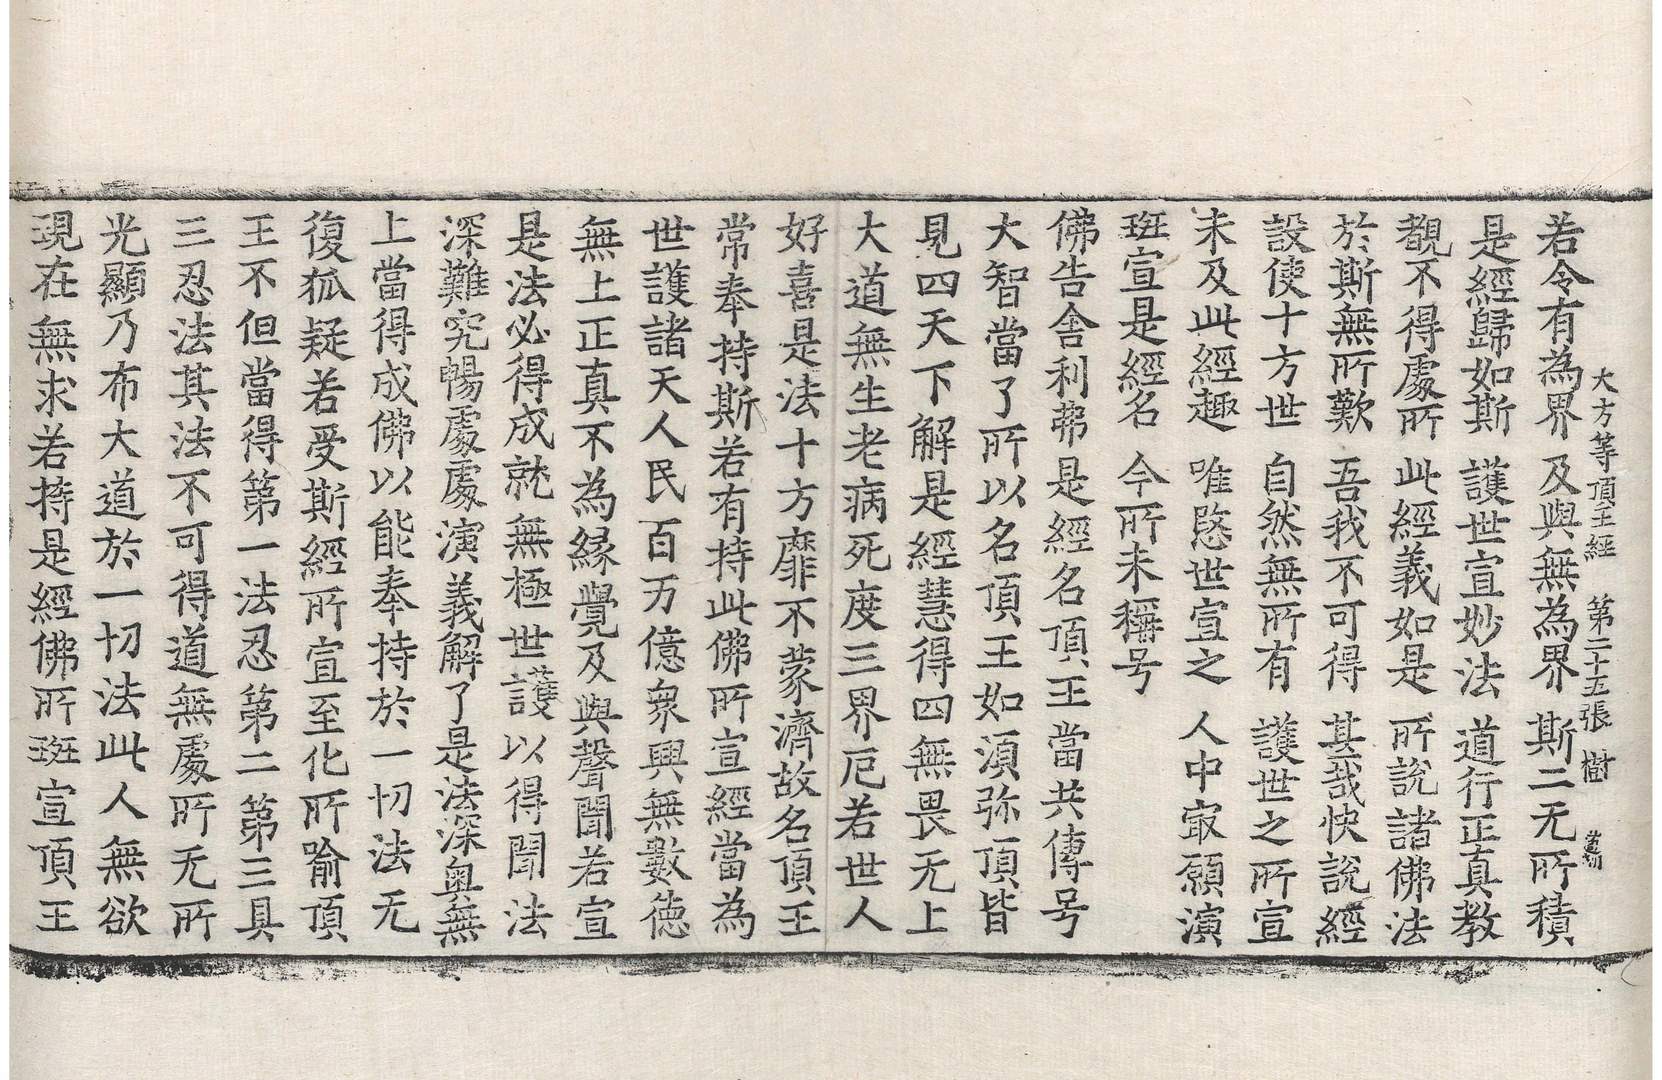 大方等頂王經 第二十五張 樹
若令有為界 及與無為界 斯二无所積
是經歸如斯 護世宣妙法 道行正真教
覩不得處所 此經義如是 所說諸佛法
於斯無所歎 吾我不可得 甚哉快說經
設使十方世 自然無所有 護世之所宣
未及此經趣 唯愍世宣之 人中㝡願演
班宣是經名 今所未稱号
佛告舍利弗是經名頂王當共傳号
大智當了所以名頂王如須弥頂皆
見四天下解是經慧得四無畏无上
大道無生老病死度三界厄若世人
好喜是法十方靡不蒙濟故名頂王
常奉持斯若有持此佛所宣經當為
世護諸天人民百万億衆興無數德
無上正真不為緣覺及與聲聞若宣
是法必得成就無極世護以得聞法
深難究暢處處演義解了是法深奥無
上當得成佛以能奉持於一切法无
復狐疑若受斯經所宣至化所喻頂
王不但當得第一法忍第二第三具
三忍法其法不可得道無處所无所
光顯乃布大道於一切法此人無欲
現在無求若持是經佛所班宣頂王